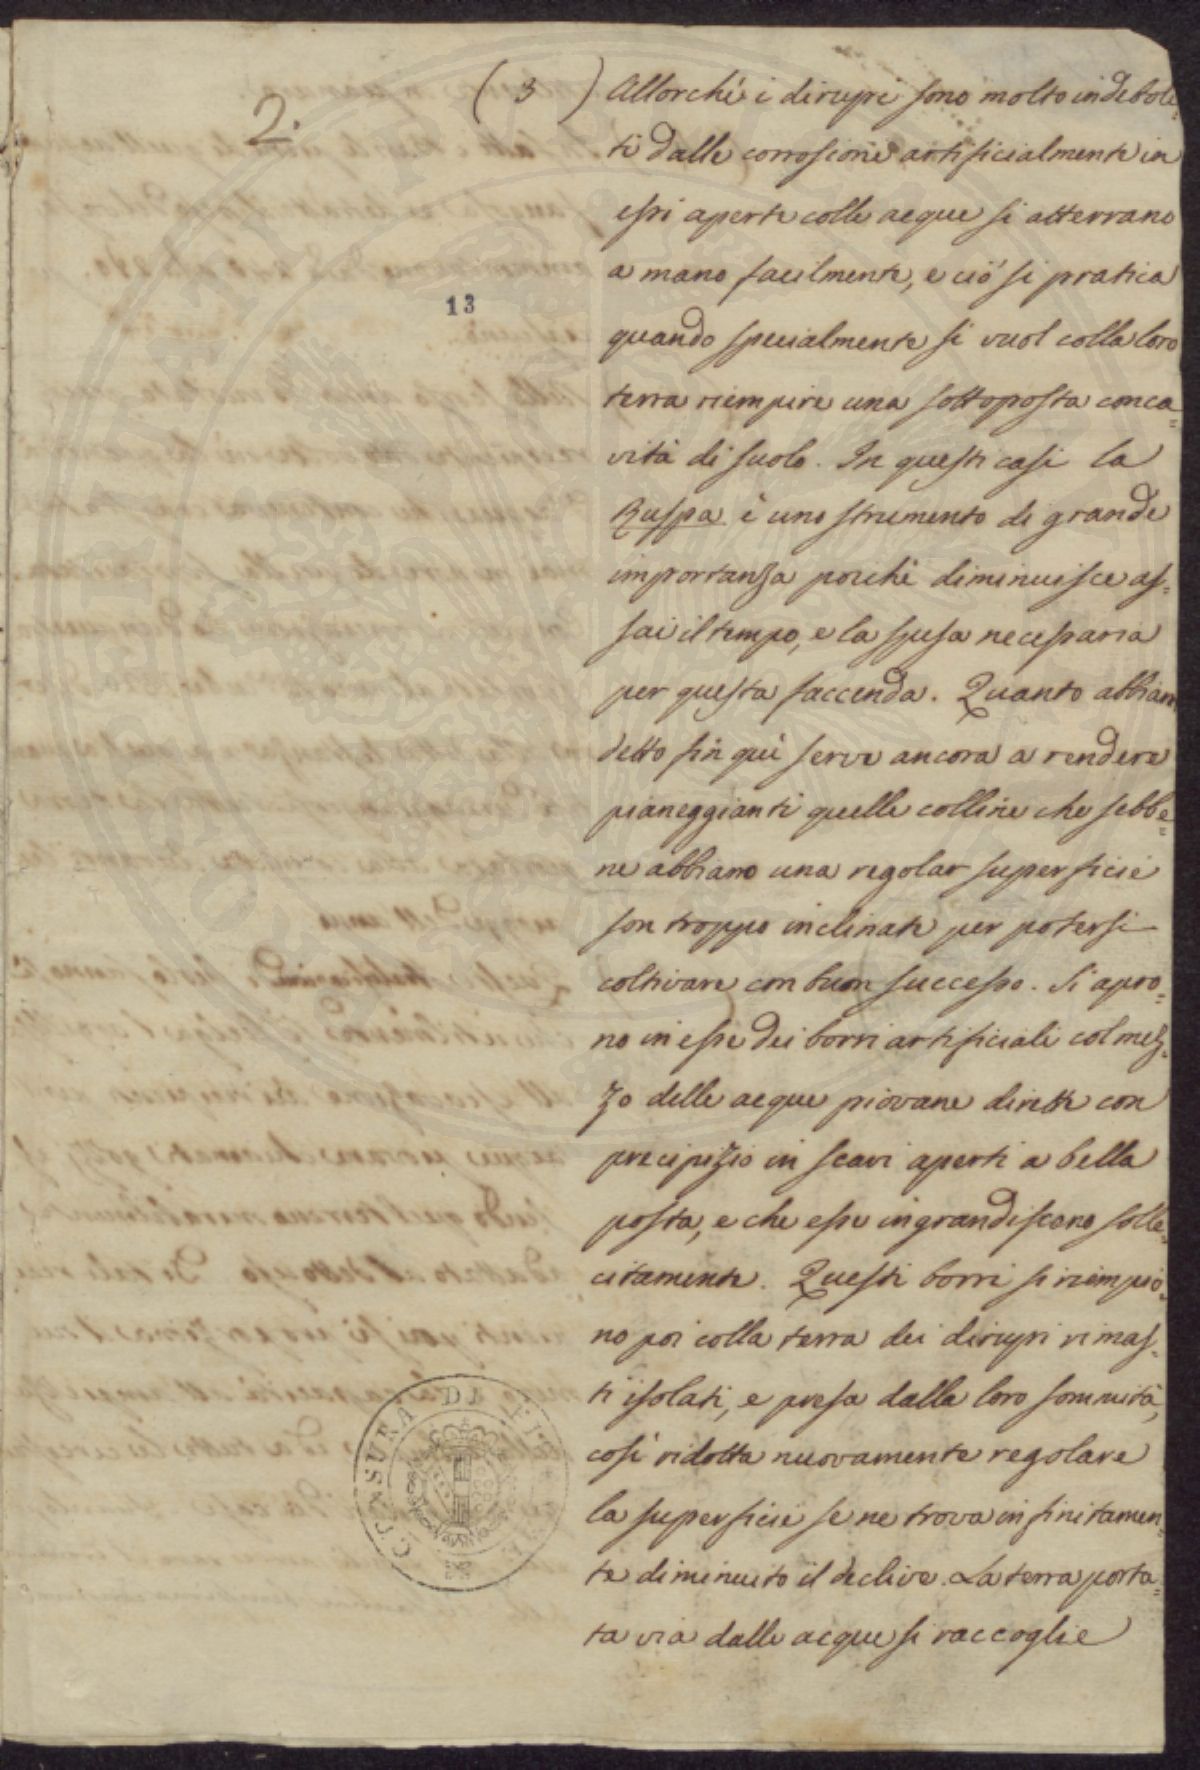 2.
( 3 ) Allorchè i dirupi sono molto indeboli=
ti dalle corrosioni artificialmente in
essi aperte colle acque si atterrano
a mano facilmente, e ciò si pratica
13
quando specialmente si vuol colla loro
terra riempire una sottoposta conca=
vità di suolo. In questi casi la
Ruspa è uno strumento di grande
importanza poichè diminuisce as=
sai il tempo, e la spesa necessaria
per questa faccenda. Quanto abbiam
detto fin quì serve ancora a rendere
pianeggianti quelle colline che sebbe=
ne abbiano una regolar superficie
son troppo inclinate per potersi
coltivare con buon successo. Si apro=
no in esse dei borri artificiali col mez=
zo delle acque piovane dirette con
precipizio in scavi aperti a bella
posta, e che esse ingrandiscono solle=
citamente. Questi borri si riempio=
no poi colla terra dei dirupi rimas=
ti isolati, e presa dalla loro sommità,
così ridotta nuovamente regolare
la superficie se ne trova infinitamen=
te diminuito il declive. La terra porta=
ta via dalle acque si raccoglie
CENSURA DI FIRENZE